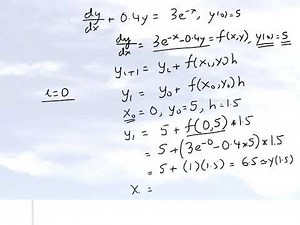 dy/dx + 0.4y = 3e^-x, y(0)=5
dy/dx = 3e^-x-0.4y = f(x,y), y(0)=5
y_i+1 = y_i + f(x_i,y_i)h
i=0
y_1 = y_0 + f(x_0,y_0)h
x_0=0, y_0=5, h=1.5
y_1 = 5 + f(0,5)*1.5
= 5+(3e^-0-0.4x5)*1.5
= 5+(1)(1.5) = 6.5≈y(1.5)
x =